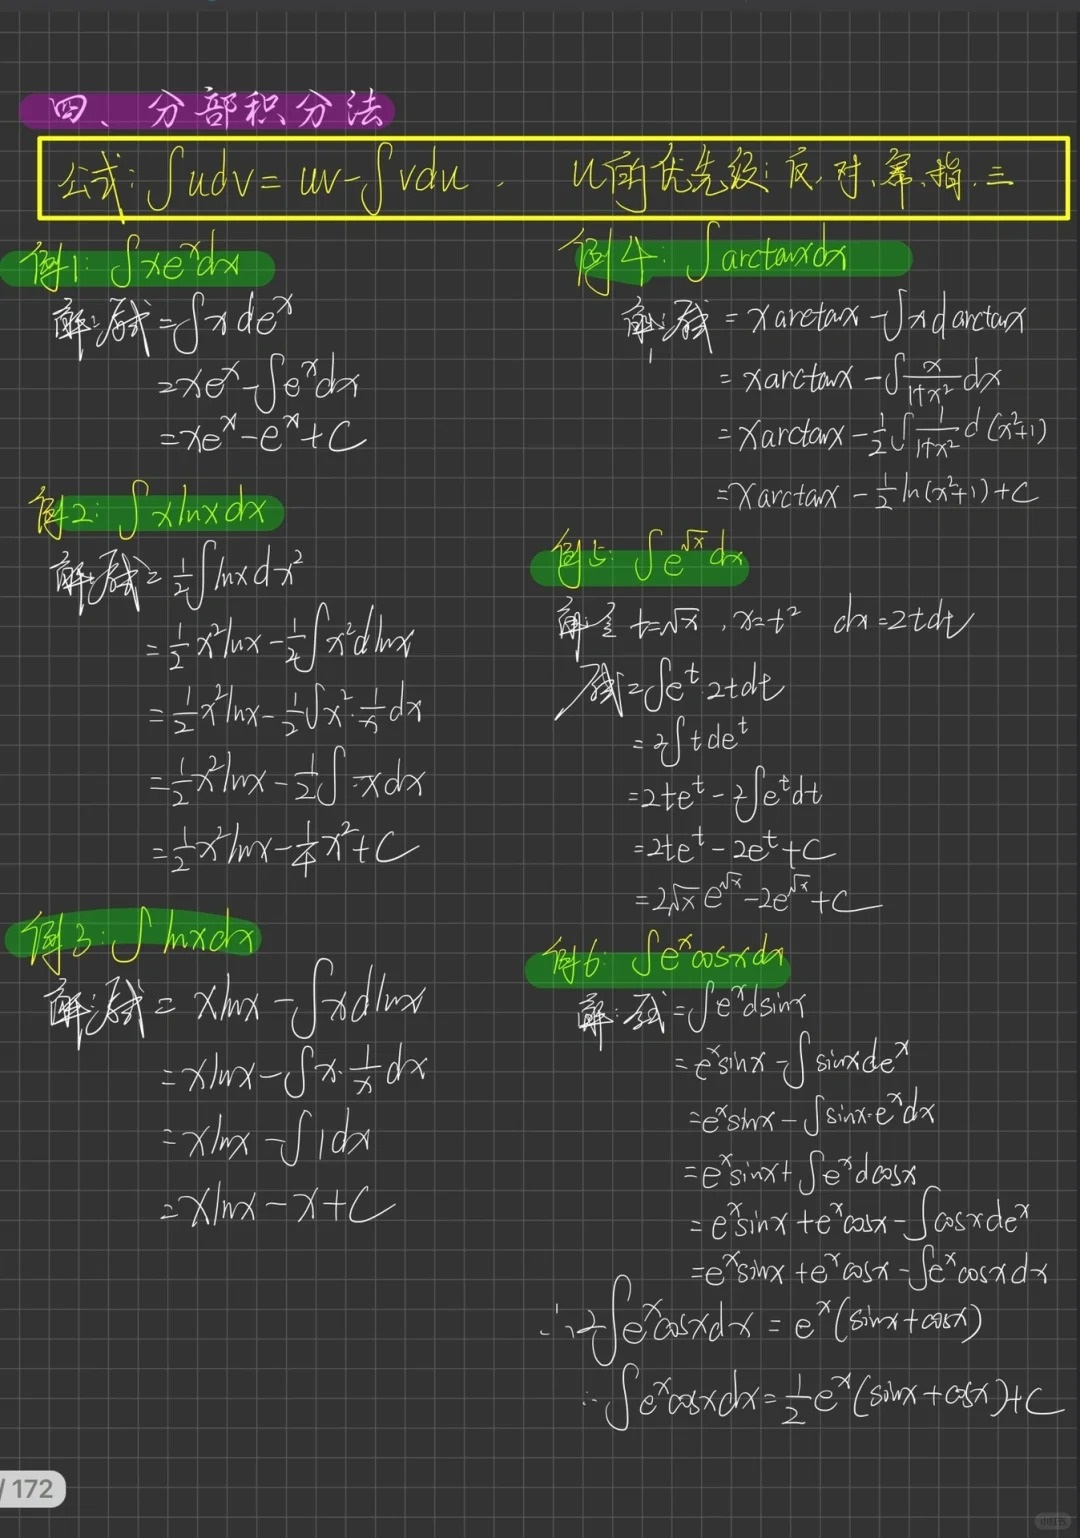 四、分部积分法
公式: ∫udv = uv - ∫vdu, u的优先级: 反、对、幂、指、三
例1: ∫xeˣdx
解: 原式 = ∫x deˣ
= xeˣ - ∫eˣdx
= xeˣ - eˣ + C
例2: ∫xlnxdx
解: 原式 = 1/2 ∫lnxdx²
= 1/2 x²lnx - 1/2 ∫x²dlnx
= 1/2 x²lnx - 1/2 ∫x²·1/x dx
= 1/2 x²lnx - 1/2 ∫xdx
= 1/2 x²lnx - 1/4 x² + C
例3: ∫lnxdx
解: 原式 = xlnx - ∫xdlnx
= xlnx - ∫x·1/x dx
= xlnx - ∫1dx
= xlnx - x + C
例4: ∫arctanxdx
解: 原式 = xarctanx - ∫xdarctanx
= xarctanx - ∫x/(1+x²) dx
= xarctanx - 1/2 ∫1/(1+x²) d(x²+1)
= xarctanx - 1/2 ln(x²+1) + C
例5: ∫e^√x dx
解: 令 t=√x, x=t² dx=2tdt
原式 = ∫eᵗ·2tdt
= 2∫tdeᵗ
= 2teᵗ - 2∫eᵗdt
= 2teᵗ - 2eᵗ + C
= 2√x e^√x - 2e^√x + C
例6: ∫eˣcosxdx
解: 原式 = ∫eˣdsinx
= eˣsinx - ∫sinxdeˣ
= eˣsinx - ∫sinx·eˣdx
= eˣsinx + ∫eˣdcosx
= eˣsinx + eˣcosx - ∫cosxdeˣ
= eˣsinx + eˣcosx - ∫eˣcosxdx
∴ 2∫eˣcosxdx = eˣ(sinx+cosx)
∴ ∫eˣcosxdx = 1/2 eˣ(sinx+cosx)+C
/ 172